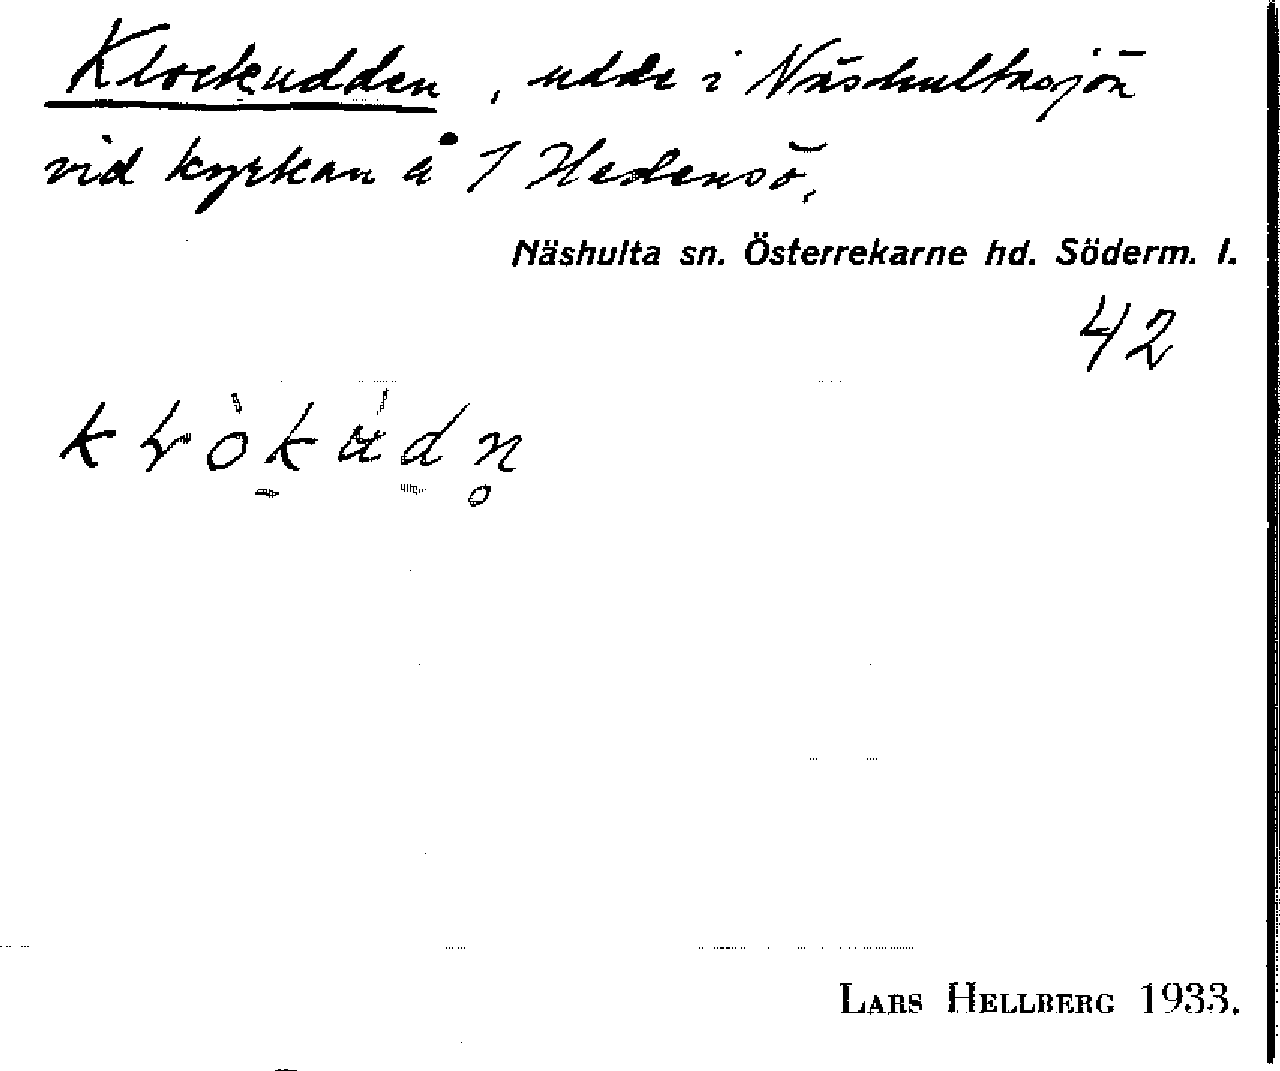 Klockudden, udde i Näshultasjön
vid kyrkan å 1 Hedensö.
Näshulta sn. Österrekarne hd. Söderm. l.
42
LARS HELLBERG 1933.